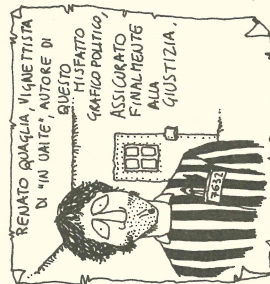 RENATO QUAGLIA, VIGNETTISTA
DI "IN UAITE", AUTORE DI
QUESTO
MISFATTO
GRAFICO POLITICO,
ASSICURATO
FINALMENTE
ALLA
GIUSTIZIA.
7632